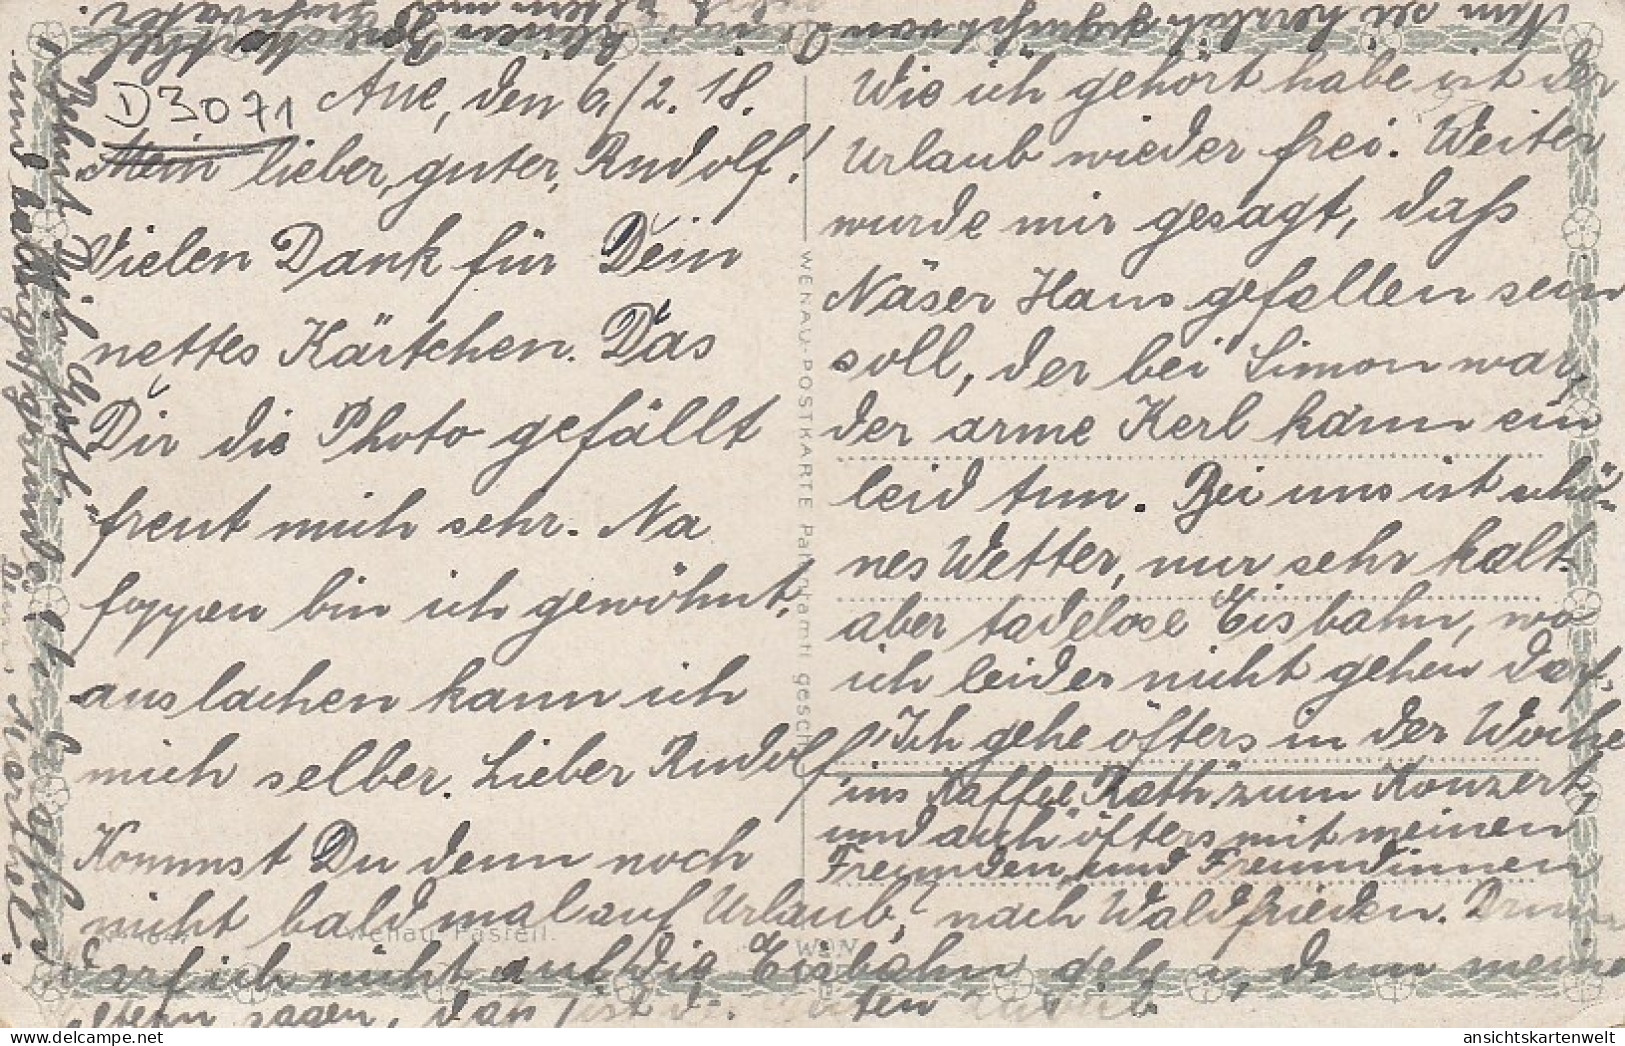 D3071
Aue, den 6./2. 18.
Mein lieber, guter, Rudolf!
Vielen Dank für Dein
nettes Kärtchen. Das
Dir die Photo gefällt
freut mich sehr. Na
foppen bin ich gewöhnt,
auslachen kann ich
mich selber. Lieber Rudolf
Kommst Du denn noch
nicht bald mal auf Urlaub?
Wie ich gehört habe ist der
Urlaub wieder frei. Weiter
wurde mir gesagt, daß
Näser Hans gefallen sein
soll, der bei Simon war,
der arme Kerl kann ein
leid tun. Bei uns ist schö-
nes Wetter, nur sehr kalt.
aber tadelose Eisbahn, wo
ich leider nicht gehen darf.
Ich gehe öfters in der Woche
ins Kaffee Rath zum Konzert,
und auch öfters mit meinen
Freunden und Freundinnen
nach Waldfrieden.
darf ich nicht auf die Eisbahn gehen, denn meine
eltern sagen, das ist
Nun sei herzlich gegrüßt von Deiner kleinen
Eltern und
Behüt Dich Gott
und
WENAU-POSTKARTE Patentamtl gesch
Wenau Pastell.
W&N
ansichtskartenwelt